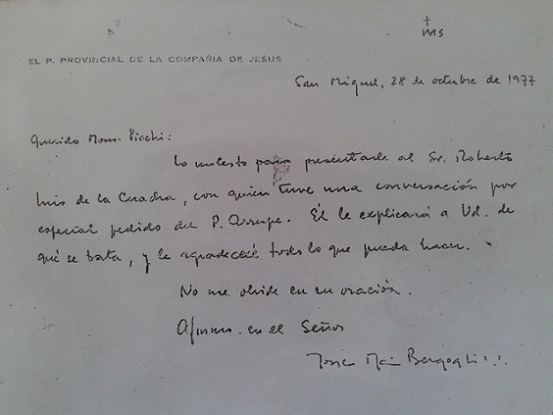 IHS
EL P. PROVINCIAL DE LA COMPAÑIA DE JESUS
San Miguel, 28 de octubre de 1977
Querido Mons. Picchi:
Lo molesto para presentarle al Sr. Roberto
Luis de la Cuadra, con quien tuve una conversación por
especial pedido del P. Arrupe. Él le explicará a Ud. de
qué se trata, y le agradeceré todo lo que pueda hacer.
No me olvide en su oración.
Afmo. en el Señor
Jorge Mario Bergoglio s.j.